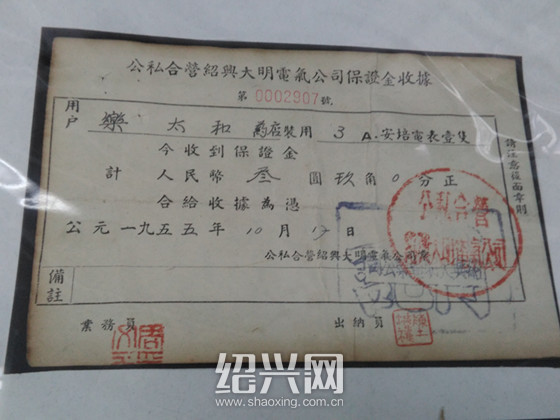 公私合營紹興大明電氣公司保證金收據
第 0002907 號
用戶 樂太和 為應裝用 3 A.安培電表壹隻
今收到保證金
計 人民幣 叁 圓 玖 角 0 分正
合給收據為憑
公元一九五五年 10 月 17 日
公私合營紹興大明電氣公司
備註
業務員
出納員
請注意後面章則
公私合營
大明電氣公司
绍兴网
www.shaoxing.com.cn